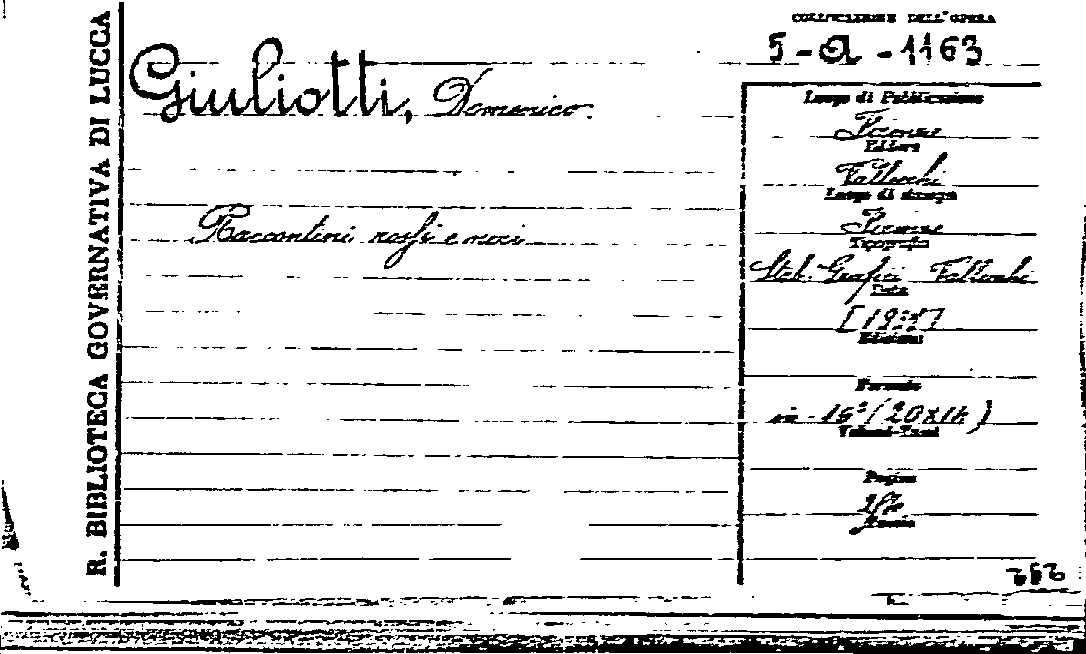 R. BIBLIOTECA GOVERNATIVA DI LUCCA
COLLOCAZIONE DELL'OPERA
5-a-1163
Giuliotti, Domenico.
Raccontini rossi e neri
Luogo di Pubblicazione
Firenze
Editore
Vallecchi
Luogo di stampa
Firenze
Tipografia
Stab. Grafici Vallecchi
Data
Edizioni
Formato
in-16° (20x14)
Volumi-Tomi
Pagine